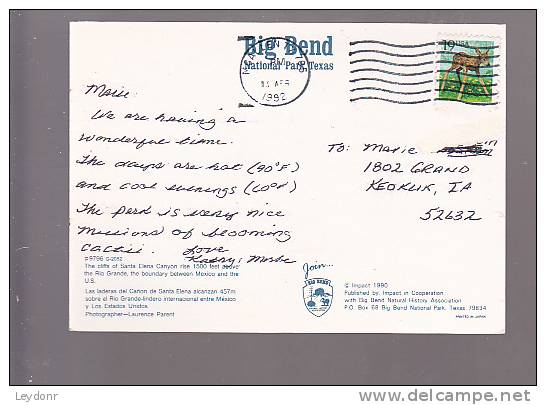 Big Bend
National Park, Texas
PM
APR
1992
19 USA
Marie:
We are having a
wonderful time.
The days are hot (90°F)
and cool evenings (60°F)
The park is very nice
Millions of blooming
cactii. Love
To: Marie
1802 GRAND
KEOKUK, IA
52632
#9796 G-2052
The cliffs of Santa Elena Canyon rise 1500 feet above
the Rio Grande, the boundary between Mexico and the
U.S.
Las laderas del Cañon de Santa Elena alcanzan 457m
sobre el Rio Grande-lindero internacional entre Mexico
y Los Estados Unidos.
Photographer—Laurence Parent
Join...
BIG BEND
© Impact 1990
Published by Impact in Cooperation
with Big Bend Natural History Association
P.O. Box 68 Big Bend National Park, Texas 79834
PRINTED IN JAPAN
Leydonr
delcampe.net